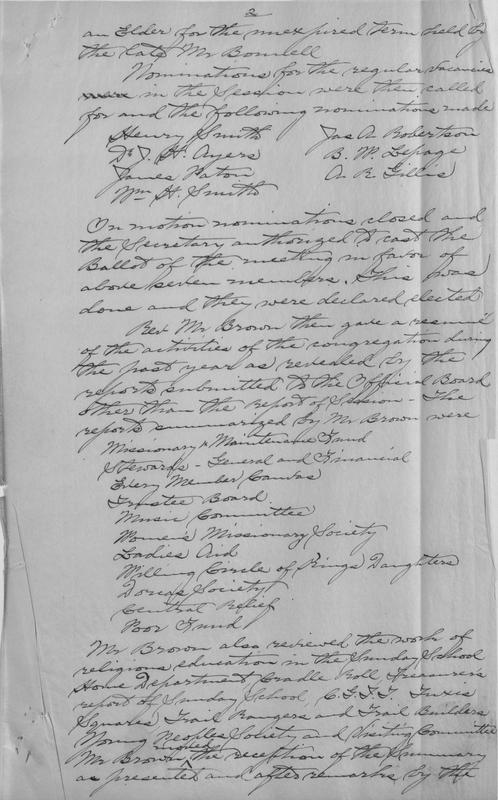 2
an Elder for the unexpired term held by
the late Mr
Nominations for the regular vacancies
in the Session were then called
for and the following nominations made
Henry Smith Jas A. Robertson
Dr J. H. Ayers B. W. Lepage
James Paton A. R. Gillis
Wm H. Smith
On motion nominations closed and
the Secretary authorized to cast the
Ballot of the meeting in favor of
above seven members. This was
done and they were declared elected
Rev. Mr Brown then gave a resumé
of the activities of the congregation during
the past year as revealed by the
reports submitted to the Official Board
other than the report of Session - The
reports summarized by Mr Brown were
Missionary & Maintenance Fund
Stewards - General and Financial
Every Member Canvas
Trustee Board
Music Committee
Women's Missionary Society
Ladies Aid
Willing Circle of Kings Daughters
Dorcas Society
Central Relief
Poor Fund
Mr Brown also reviewed the work of
religious education in the Sunday School
Home Department, Cradle Roll, Treasurer's
report of Sunday School, C.G.I.T. Tuxis
Squares Trail Rangers and Trail Builders
Young Peoples Society and Visiting Committee
moved
Mr Brown the reception of the Summary
as presented and after remarks by the